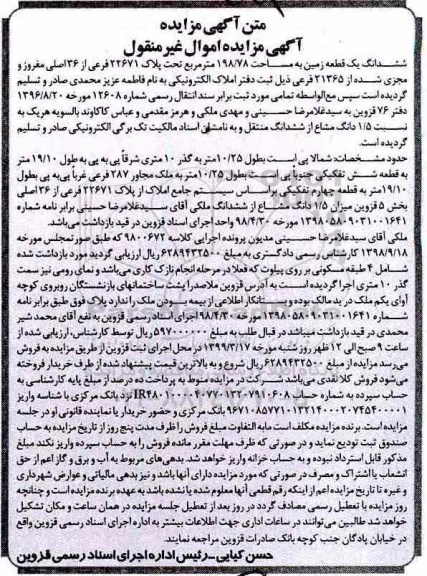 متن آگهی مزایده
آگهی مزایده اموال غیر منقول
ششدانگ یک قطعه زمین به مساحت ۱۹۸/۷۸ مترمربع تحت پلاک ۲۲۶۷۱ فرعی از ۳۶ اصلی مفروز و
مجزی شده از ۲۱۳۶۵ فرعی ذیل ثبت دفتر املاک الکترونیکی به نام فاطمه عزیز محمدی صادر و تسلیم
گردیده است سپس مع‌الواسطه تمامی مورد ثبت برابر سند انتقال رسمی شماره ۱۲۶۰۸ مورخه ۱۳۹۶/۸/۲۰
دفتر ۷۶ قزوین به سیدغلامرضا حسینی و مهدی ملکی و هرمز مقدمی و عباس کاکاوند بالسویه هریک به
نسبت ۱/۵ دانگ مشاع از ششدانگ منتقل و به نامشان اسناد مالکیت تک برگی الکترونیکی صادر و تسلیم
گردیده است.
حدود مشخصات: شمالا پی است بطول ۱۰/۲۵ متر به گذر ۱۰ متری شرقاً پی به پی به طول ۱۹/۱۰ متر
به قطعه شش تفکیکی جنوباً پی است بطول ۱۰/۲۵ متر به ملک مجاور ۲۸۷ فرعی غرباً پی به پی بطول
۱۹/۱۰ متر به قطعه چهارم تفکیکی براساس سیستم جامع املاک از پلاک ۲۲۶۷۱ فرعی از ۳۶ اصلی
بخش ۵ قزوین میزان ۱/۵ دانگ مشاع از ششدانگ ملکی آقای سیدغلامرضا حسینی برابر نامه شماره
۱۳۹۸۰۵۸۰۹۰۳۱۰۰۱۶۴۱ مورخه ۹۸/۴/۳۰ واحد اجرای اسناد قزوین در قید بازداشت می‌باشد.
ملکی آقای سیدغلامرضا حسینی مدیون پرونده اجرایی کلاسه ۹۸۰۰۶۷۲ که طبق صورتمجلس مورخه
۱۳۹۸/۹/۱۸ کارشناس رسمی دادگستری به مبلغ ۶۲۸۹۴۳۲۵۰۰ ریال ارزیابی گردید مورد بازداشت شده
شامل ۴ طبقه مسکونی بر روی پیلوت که فعلا در مرحله انجام نازک کاری می‌باشد و نمای رومی نیز سمت
گذر ۱۰ متری اجرا گردیده است به آدرس قزوین ملاصدرا پشت ساختمانهای بازنشستگان روبروی کوچه
آوای یکم ملک در ید مالک بوده و بستانکار اطلاعی از بیمه بودن ملک را ندارد پلاک فوق طبق برابر نامه
شماره ۱۳۹۸۰۵۸۰۹۰۳۱۰۰۱۶۴۱ مورخه ۹۸/۴/۳۰ اجرای اسناد رسمی قزوین به نفع آقای محمد شیر
محمدی در قید بازداشت میباشد در قبال طلب به مبلغ ۵۹۷۰۰۰۰۰۰ ریال توسط کارشناس، ارزیابی شده از
ساعت ۹ صبح الی ۱۲ ظهر روز شنبه مورخه ۱۳۹۹/۳/۱۷ در محل اجرای ثبت قزوین از طریق مزایده به فروش
می‌رسد مزایده از مبلغ ۶۲۸۹۴۳۲۵۰۰ ریال شروع و به بالاترین قیمت پیشنهاد شده از طرف خریدار فروخته
می‌شود فروش کلا نقدی می‌باشد شرکت در مزایده منوط به پرداخت ده درصد از مبلغ پایه کارشناسی به
حساب سپرده به شماره حساب نزد بانک مرکزی با شناسه واریز
بانک مرکزی و حضور خریدار یا نماینده قانونی او در جلسه
مزایده است. برنده مزایده مکلف است مابه التفاوت مبلغ فروش را ظرف مدت پنج روز از تاریخ مزایده به حساب
صندوق ثبت تودیع نماید و در صورتی که ظرف مهلت مقرر مانده فروش را به حساب سپرده واریز نکند مبلغ
مذکور قابل استرداد نبوده و به حساب خزانه واریز خواهد شد. بدهی‌های مربوط به آب و برق و گاز اعم از حق
انشعاب یا اشتراک و مصرف در صورتی که مورد مزایده دارای آنها باشد و نیز بدهی مالیاتی و عوارض شهرداری
و غیره تا تاریخ مزایده اعم از اینکه رقم قطعی آنها معلوم شده یا نشده باشد به عهده برنده مزایده است و چنانچه
روز مزایده با تعطیل رسمی مصادف گردد در روز بعد از تعطیل جلسه مزایده در همان ساعت و مکان تشکیل
خواهد شد طالبین می‌توانند در ساعات اداری جهت اطلاعات بیشتر به اداره اجرای اسناد رسمی قزوین واقع
در خیابان پادگان جنب کوچه بانک صادرات قزوین مراجعه نمایند.
حسن کیایی - رئیس اداره اجرای اسناد رسمی قزوین